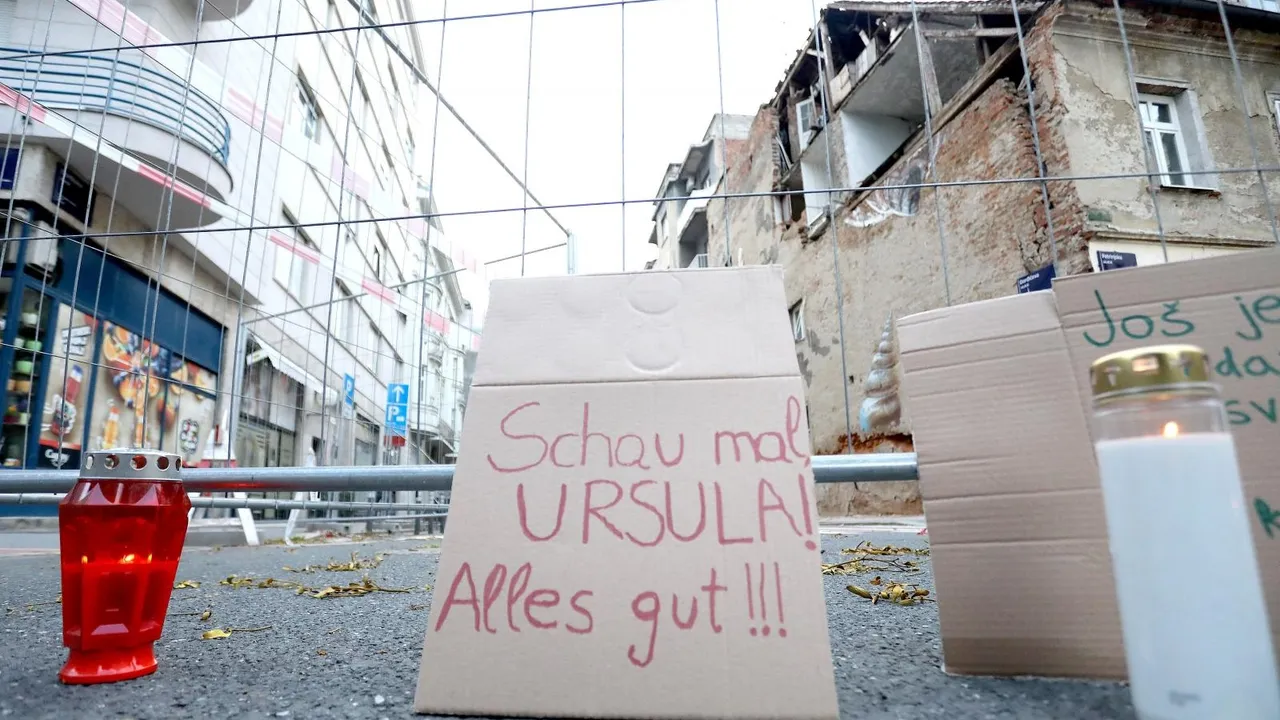 Schau mal,
URSULA!
Alles gut!!!
Još je
da
sv
P